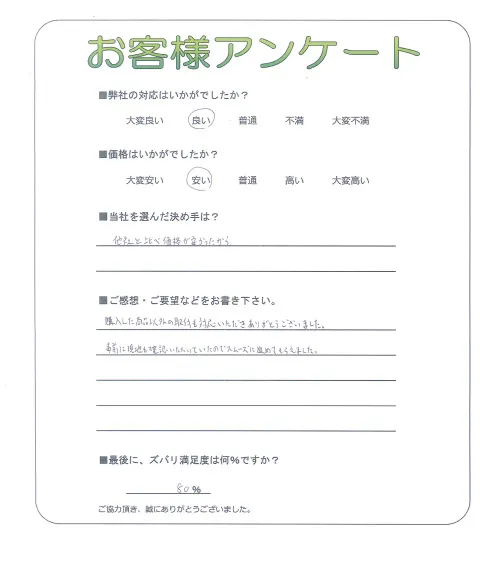 お客様アンケート
■弊社の対応はいかがでしたか？
大変良い 良い 普通 不満 大変不満
■価格はいかがでしたか？
大変安い 安い 普通 高い 大変高い
■当社を選んだ決め手は？
他社と比べ価格が安かったから
■ご感想・ご要望などをお書き下さい。
購入した商品以外の取付も対応いただきありがとうございました。
事前に現地も確認いただいていたのでスムーズに進めてもらえました。
■最後に、ズバリ満足度は何％ですか？
80％
ご協力頂き、誠にありがとうございました。